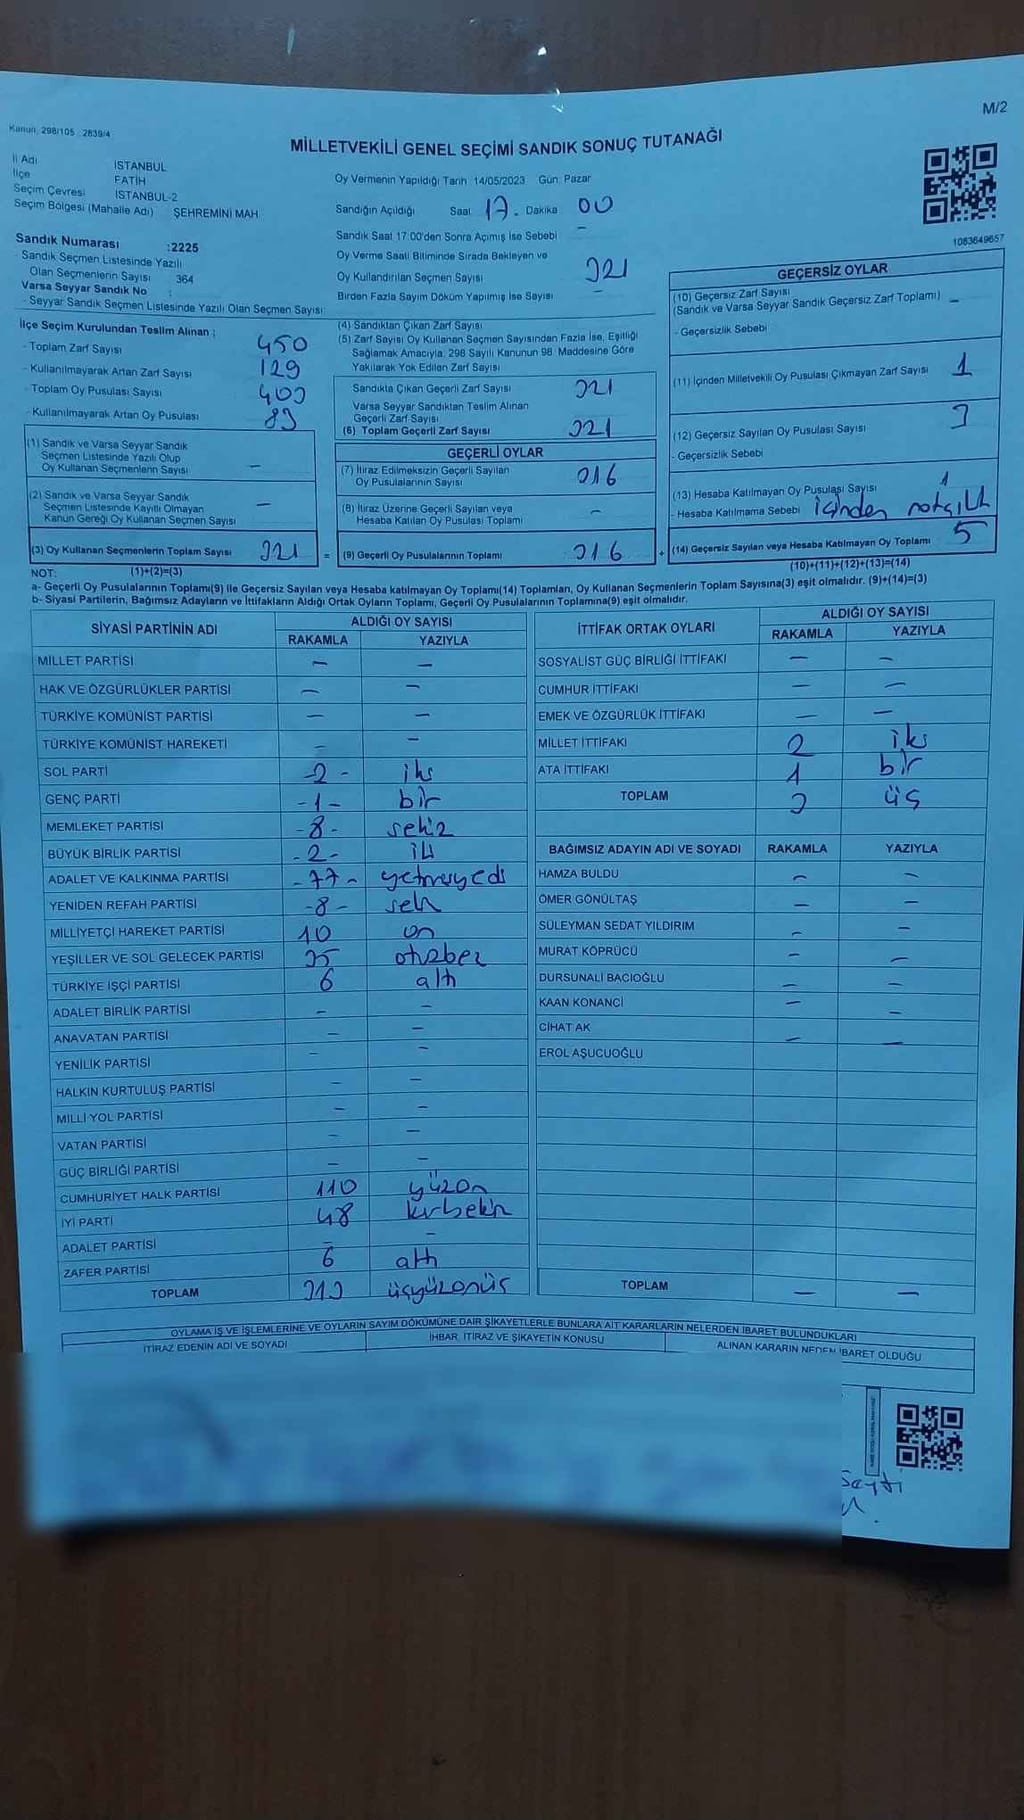 M/2
Kanun, 298/105 2839/4
MİLLETVEKİLİ GENEL SEÇİMİ SANDIK SONUÇ TUTANAĞI
İl Adı İSTANBUL
İlçe FATİH
Seçim Çevresi İSTANBUL-2
Seçim Bölgesi (Mahalle Adı) ŞEHREMİNİ MAH
Sandık Numarası :2225
- Sandık Seçmen Listesinde Yazılı
Olan Seçmenlerin Sayısı 364
Varsa Seyyar Sandık No :
- Seyyar Sandık Seçmen Listesinde Yazılı Olan Seçmen Sayısı:
Oy Vermenin Yapıldığı Tarih 14/05/2023 Gün: Pazar
Sandığın Açıldığı Saat 17. Dakika 00
Sandık Saat 17:00'den Sonra Açımış İse Sebebi -
Oy Verme Saati Bitiminde Sırada Bekleyen ve
Oy Kullandırılan Seçmen Sayısı 321
Birden Fazla Sayım Döküm Yapılmış İse Sayısı -
1083649657
İlçe Seçim Kurulundan Teslim Alınan ;
- Toplam Zarf Sayısı 450
- Kullanılmayarak Artan Zarf Sayısı 129
- Toplam Oy Pusulası Sayısı 403
- Kullanılmayarak Artan Oy Pusulası 83
(1) Sandık ve Varsa Seyyar Sandık
Seçmen Listesinde Yazılı Olup
Oy Kullanan Seçmenlerin Sayısı -
(2) Sandık ve Varsa Seyyar Sandık
Seçmen Listesinde Kayıtlı Olmayan
Kanun Gereği Oy Kullanan Seçmen Sayısı -
(3) Oy Kullanan Seçmenlerin Toplam Sayısı 321 =
(1)+(2)=(3)
(4) Sandıktan Çıkan Zarf Sayısı
(5) Zarf Sayısı Oy Kullanan Seçmen Sayısından Fazla İse, Eşitliği
Sağlamak Amacıyla, 298 Sayılı Kanunun 98. Maddesine Göre
Yakılarak Yok Edilen Zarf Sayısı
Sandıkta Çıkan Geçerli Zarf Sayısı 321
Varsa Seyyar Sandıktan Teslim Alınan
Geçerli Zarf Sayısı
(6) Toplam Geçerli Zarf Sayısı 321
GEÇERLİ OYLAR
(7) İtiraz Edilmeksizin Geçerli Sayılan
Oy Pusulalarının Sayısı 316
(8) İtiraz Üzerine Geçerli Sayılan veya
Hesaba Katılan Oy Pusulası Toplamı -
(9) Geçerli Oy Pusulalarının Toplamı 316 +
GEÇERSİZ OYLAR
(10) Geçersiz Zarf Sayısı
(Sandık ve Varsa Seyyar Sandık Geçersiz Zarf Toplamı) -
- Geçersizlik Sebebi
(11) İçinden Milletvekili Oy Pusulası Çıkmayan Zarf Sayısı 1
(12) Geçersiz Sayılan Oy Pusulası Sayısı 3
- Geçersizlik Sebebi
(13) Hesaba Katılmayan Oy Pusulası Sayısı 1
- Hesaba Katılmama Sebebi içinden
(14) Geçersiz Sayılan veya Hesaba Katılmayan Oy Toplamı 5
(10)+(11)+(12)+(13)=(14)
NOT:
a- Geçerli Oy Pusulalarının Toplamı(9) ile Geçersiz Sayılan veya Hesaba katılmayan Oy Toplamı(14) Toplamları, Oy Kullanan Seçmenlerin Toplam Sayısına(3) eşit olmalıdır. (9)+(14)=(3)
b- Siyasi Partilerin, Bağımsız Adayların ve İttifakların Aldığı Ortak Oyların Toplamı, Geçerli Oy Pusulalarının Toplamına(9) eşit olmalıdır.
SİYASİ PARTİNİN ADI ALDIĞI OY SAYISI
RAKAMLA YAZIYLA
MİLLET PARTİSİ - -
HAK VE ÖZGÜRLÜKLER PARTİSİ - -
TÜRKİYE KOMÜNİST PARTİSİ - -
TÜRKİYE KOMÜNİST HAREKETİ - -
SOL PARTİ -2- iki
GENÇ PARTİ -1- bir
MEMLEKET PARTİSİ -8- sekiz
BÜYÜK BİRLİK PARTİSİ -2- iki
ADALET VE KALKINMA PARTİSİ -77- yetmişyedi
YENİDEN REFAH PARTİSİ -8- sekiz
MİLLİYETÇİ HAREKET PARTİSİ 10 on
YEŞİLLER VE SOL GELECEK PARTİSİ 35 otuzbeş
TÜRKİYE İŞÇİ PARTİSİ 6 altı
ADALET BİRLİK PARTİSİ - -
ANAVATAN PARTİSİ - -
YENİLİK PARTİSİ - -
HALKIN KURTULUŞ PARTİSİ - -
MİLLİ YOL PARTİSİ - -
VATAN PARTİSİ - -
GÜÇ BİRLİĞİ PARTİSİ - -
CUMHURİYET HALK PARTİSİ 110 yüzon
İYİ PARTİ 48 kırksekiz
ADALET PARTİSİ - -
ZAFER PARTİSİ 6 altı
TOPLAM 313 üçyüzonüç
İTTİFAK ORTAK OYLARI ALDIĞI OY SAYISI
RAKAMLA YAZIYLA
SOSYALİST GÜÇ BİRLİĞİ İTTİFAKI - -
CUMHUR İTTİFAKI - -
EMEK VE ÖZGÜRLÜK İTTİFAKI - -
MİLLET İTTİFAKI 2 iki
ATA İTTİFAKI 1 bir
TOPLAM 3 üç
BAĞIMSIZ ADAYIN ADI VE SOYADI RAKAMLA YAZIYLA
HAMZA BULDU - -
ÖMER GÖNÜLTAŞ - -
SÜLEYMAN SEDAT YILDIRIM - -
MURAT KÖPRÜCÜ - -
DURSUNALİ BACIOĞLU - -
KAAN KONANCİ - -
CİHAT AK - -
EROL AŞUCUOĞLU
TOPLAM - -
OYLAMA İŞ VE İŞLEMLERİNE VE OYLARIN SAYIM DÖKÜMÜNE DAİR ŞİKAYETLERLE BUNLARA AİT KARARLARIN NELERDEN İBARET BULUNDUKLARI
İTİRAZ EDENİN ADI VE SOYADI İHBAR, İTİRAZ VE ŞİKAYETİN KONUSU ALINAN KARARIN NEDEN İBARET OLDUĞU